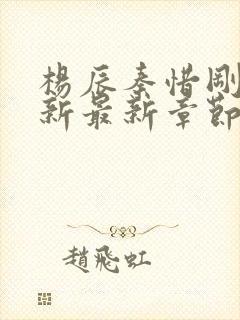 楊辰秦惜剛
新最新章節
趙飛虹